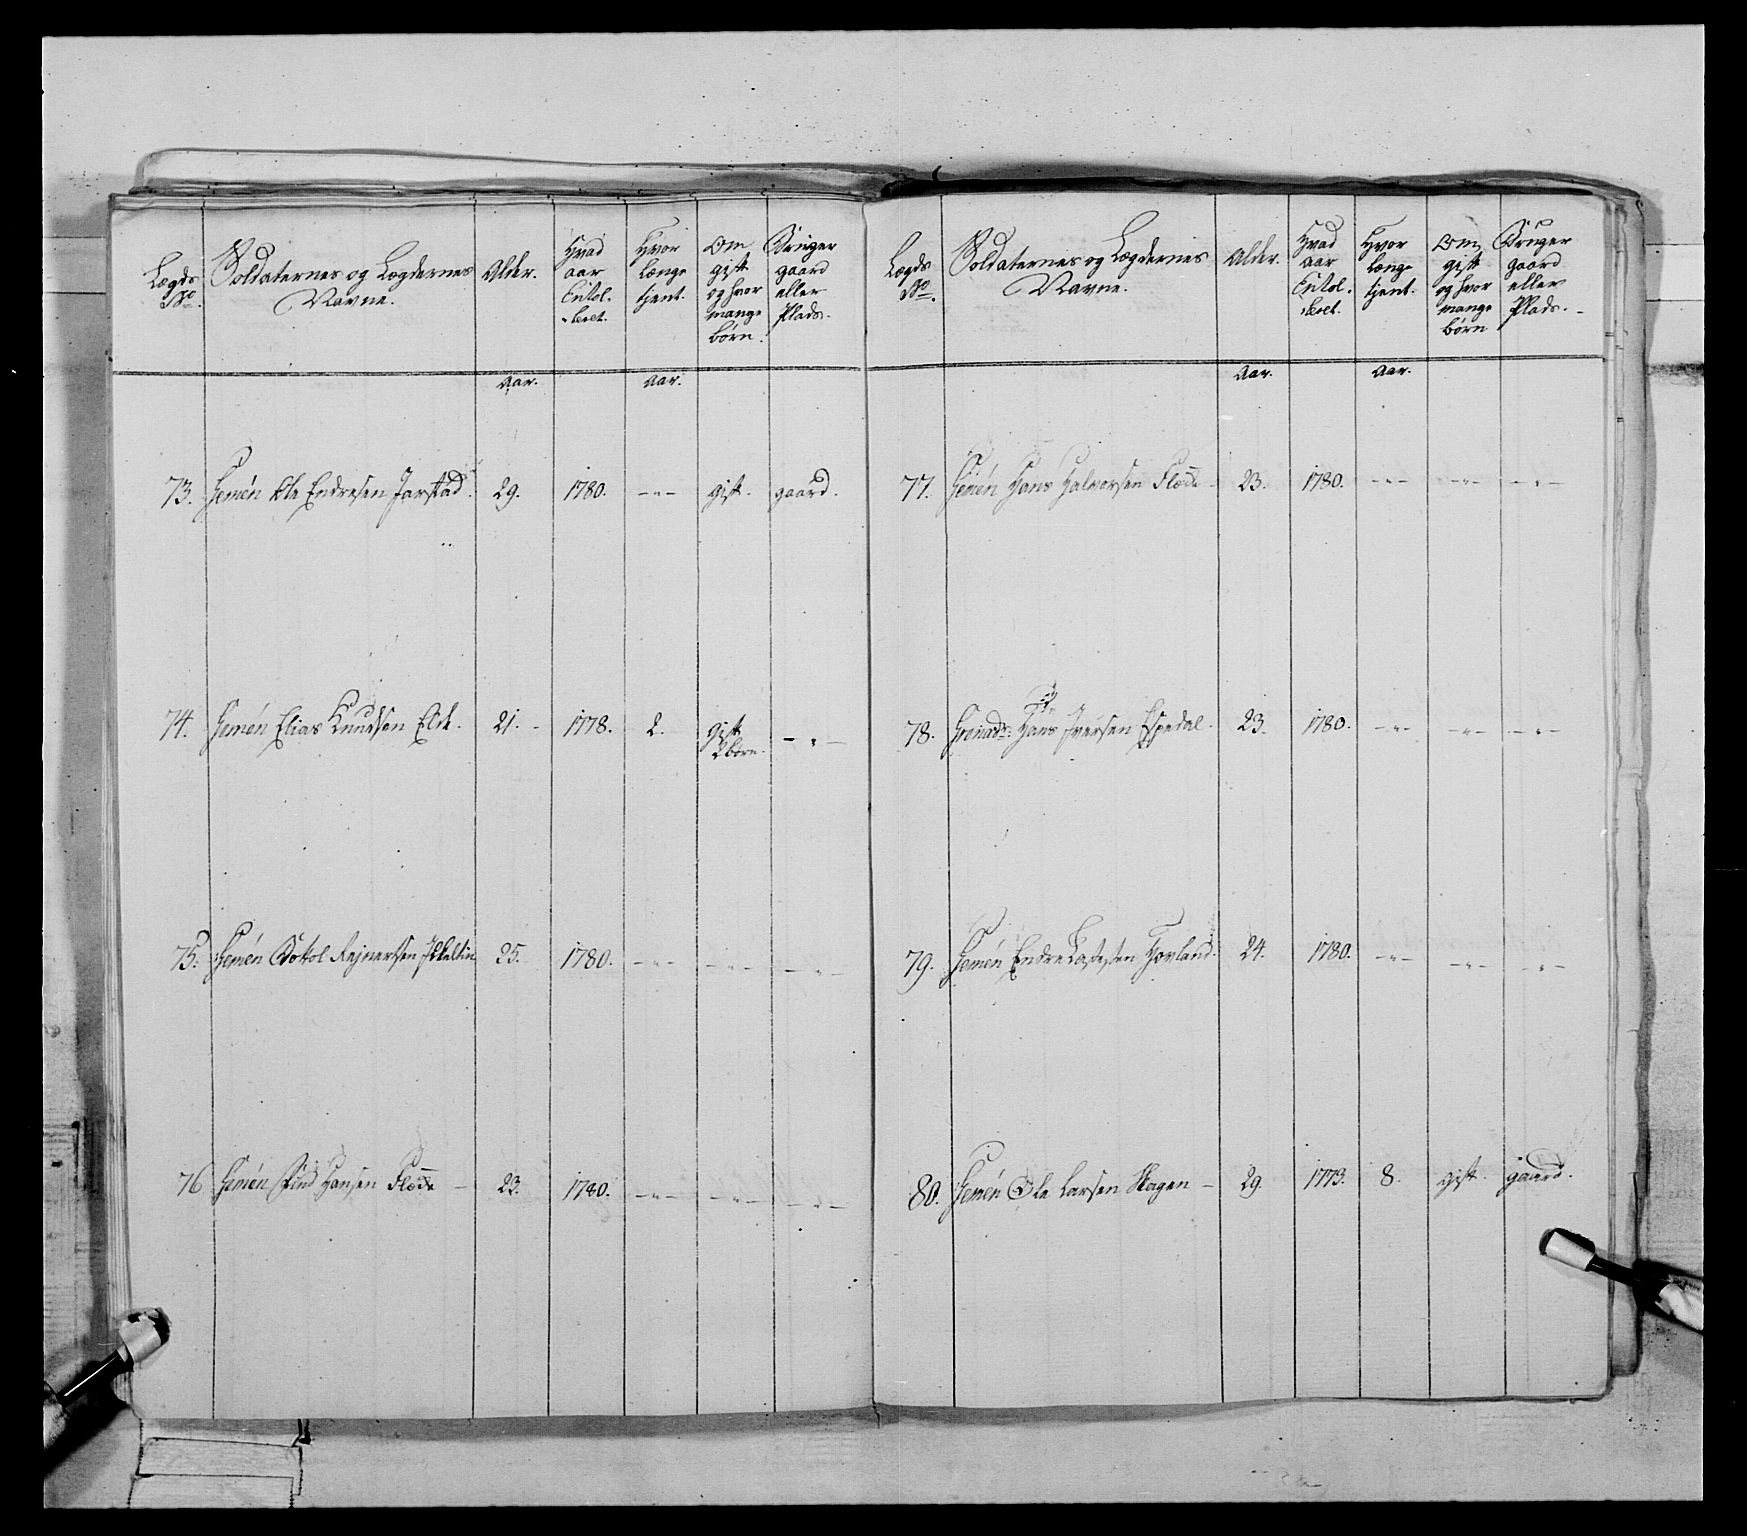 Lægds No. Soldaternes og Lægdernes Navne. Alder. Hvad aar Enrol- leret. Hvor længe tjent. Om gift og hvor mange børn. Bruger gaard eller Plads.
Aar. Aar.
73. Gemén Ole Endresen Jarstad. 29. 1780. -"- gift. gaard.
74. Gemén Elias Knudsen Elde. 21. - 1778. 2. gift 2 børn. -"-
75. Gemén Rejnertsen 25. 1780. -"- -"- -"-
76 Gemén Find Hansen Fløde - 23. 1780. -"- -"- -"-
Lægds No. Soldaternes og Lægdernes Navne. Alder. Hvad aar Enrol- leret. Hvor længe tjent. Om gift og hvor mange børn Bruger gaard eller Plads. -
Aar. Aar.
77. Gemén Hans Halvorsen Fløde - 23. 1780. -"- -"- -"-
78. Grenad: Hans Iversen Espedal. 23. 1780. -"- -"- -"-
79. Gemén Endre Hovland. 24. 1780. -"- -"- -"-
80. Gemén Ole Larsen Hagen - 29. 1773. 8. gift. gaard.